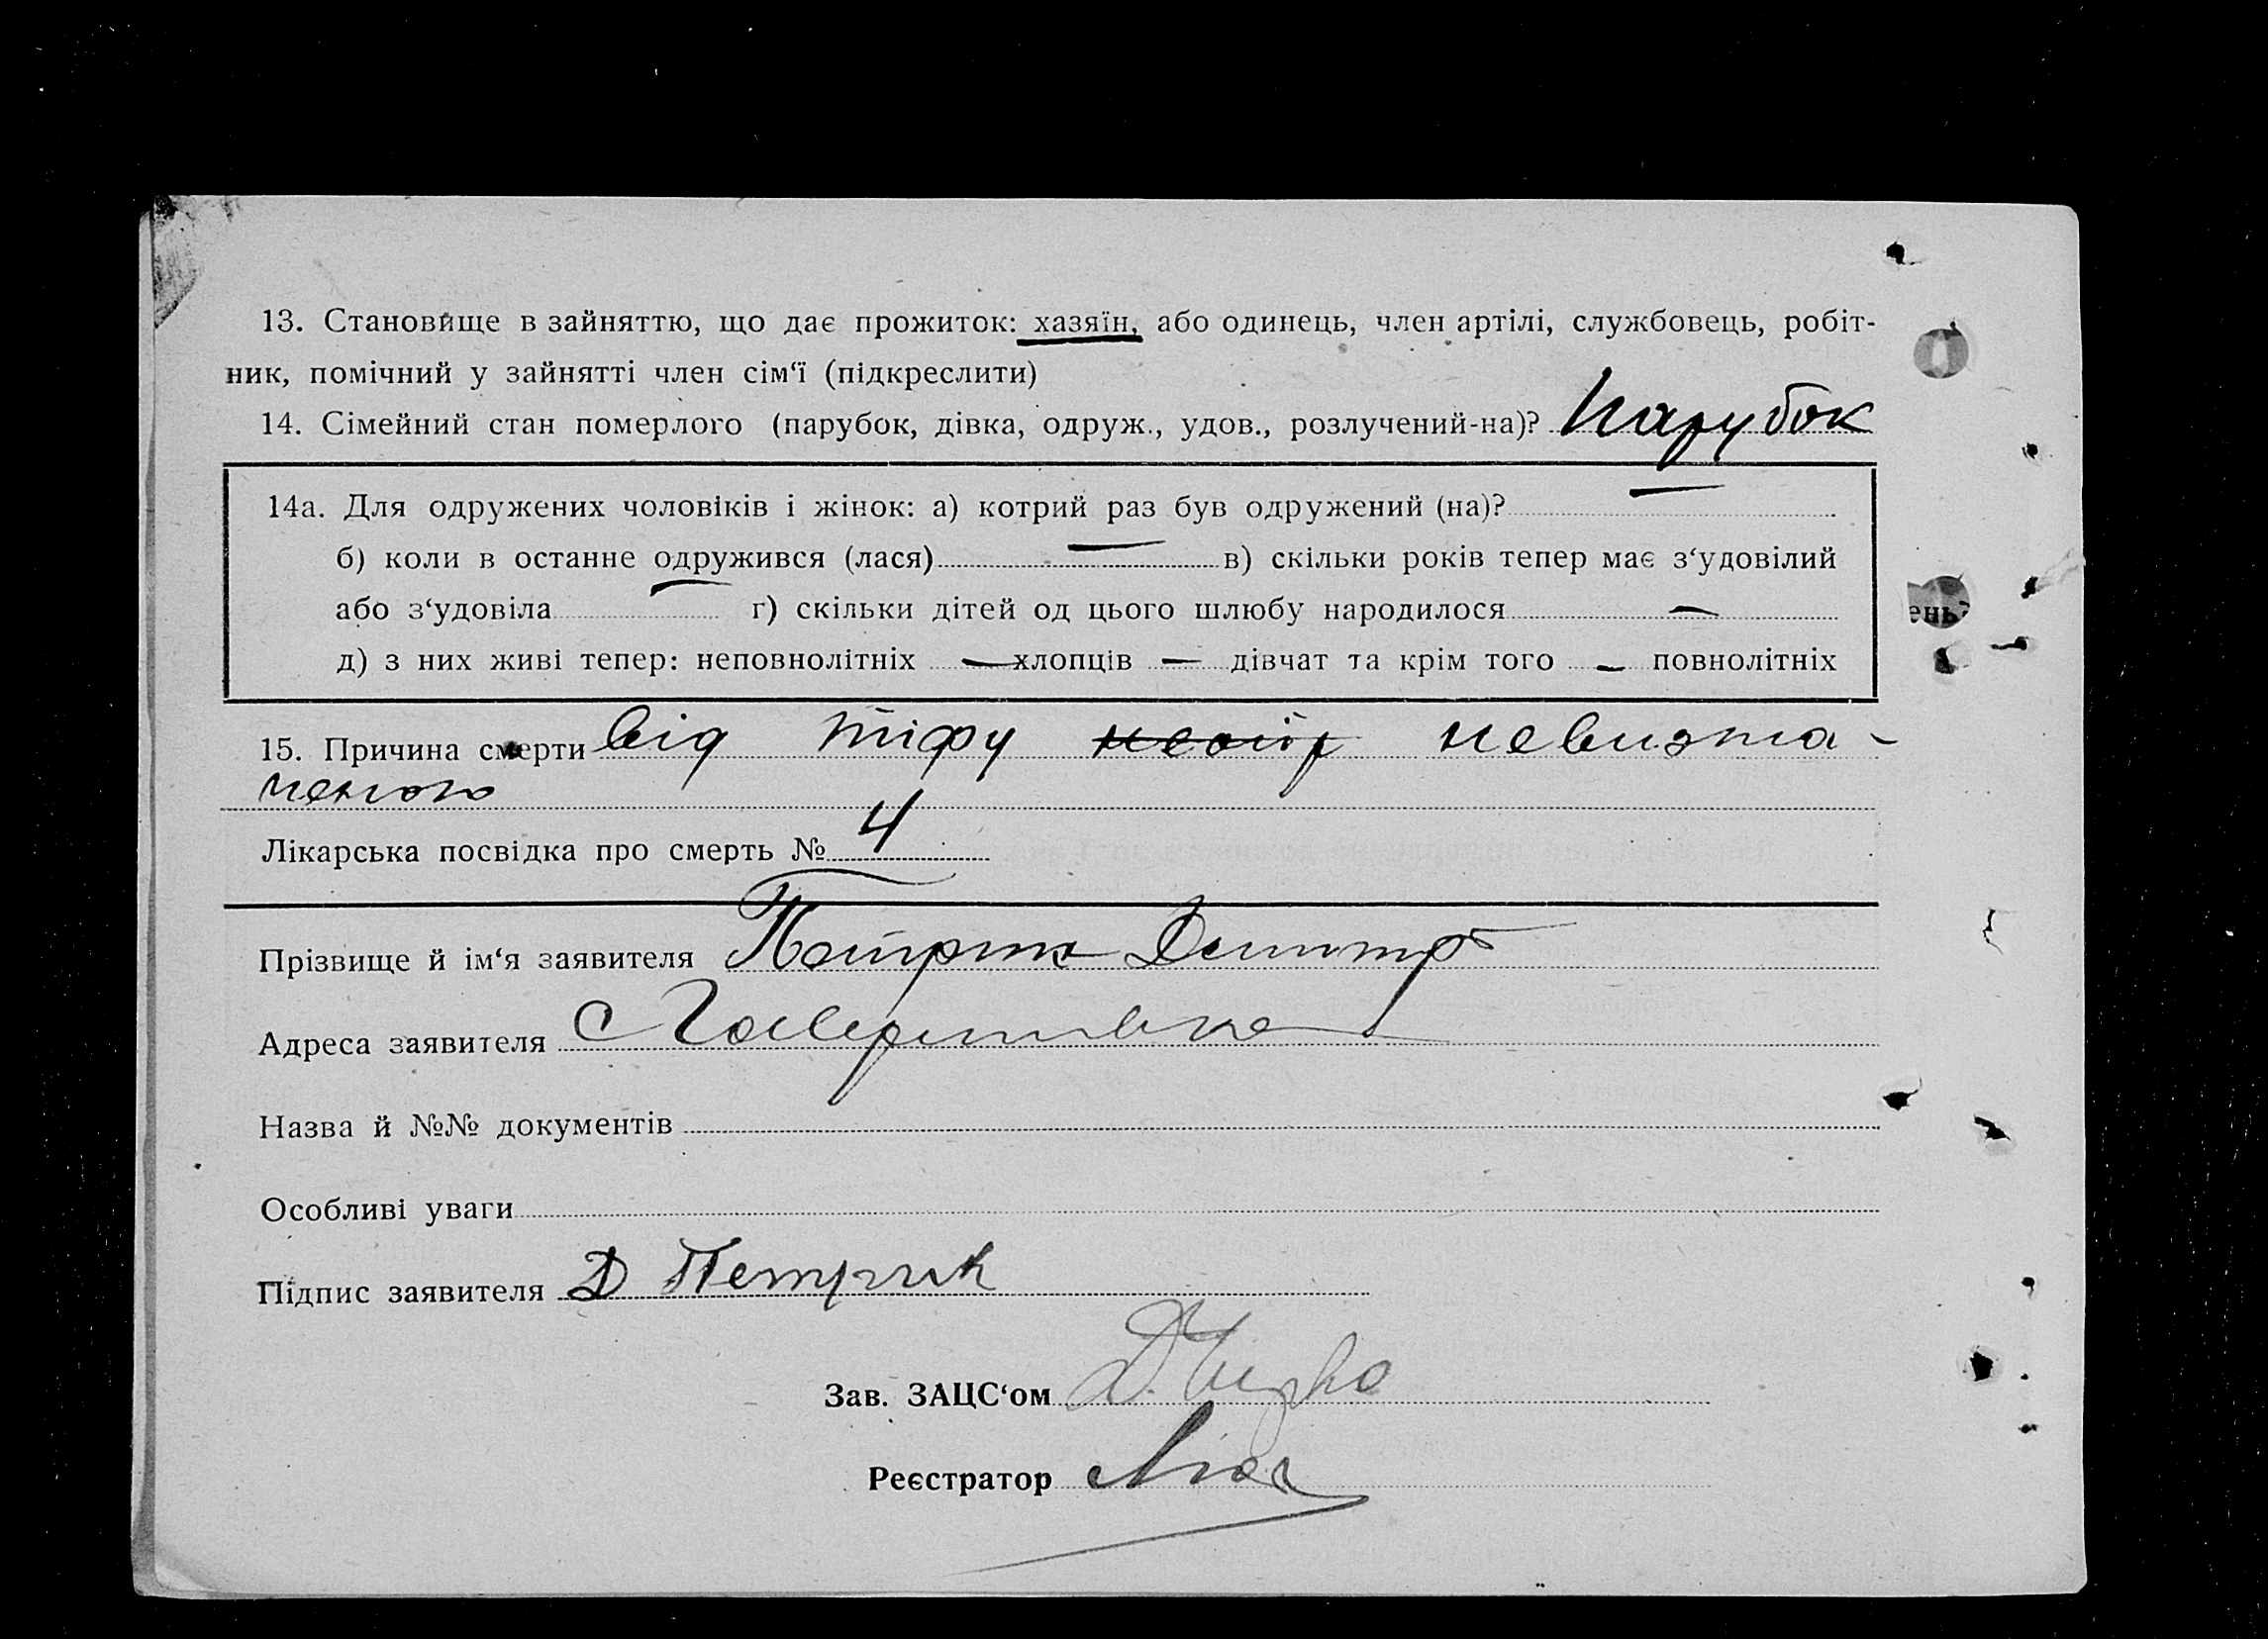 13. Становище в зайняттю, що дає прожиток: хазяїн, або одинець, член артілі, службовець, робіт-
ник, помічний у зайнятті член сім‘ї (підкреслити)
14. Сімейний стан померлого (парубок, дівка, одруж., удов., розлучений-на)? Парубок
14а. Для одружених чоловіків і жінок: а) котрий раз був одружений (на)? —
б) коли в останне одружився (лася) — в) скільки років тепер має з‘удовілий
або з‘удовіла — г) скільки дітей од цього шлюбу народилося —
д) з них живі тепер: неповнолітніх — хлопців — дівчат та крім того — повнолітніх
ень?
15. Причина смерти від тіфу невизна-
ченого
Лікарська посвідка про смерть № 4
Прізвище й ім‘я заявителя Петрик Дмитро
Адреса заявителя с Гаверишвка
Назва й №№ документів
Особливі уваги
Підпис заявителя Д Петрик
Зав. ЗАЦС‘ом
Реєстратор